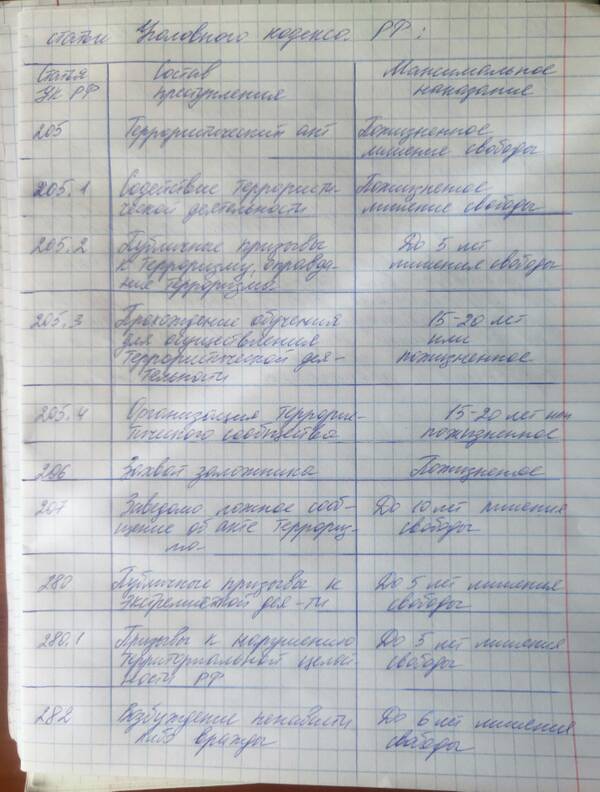 статьи Уголовного кодекса РФ:
Статья УК РФ Состав преступления Максимальное наказание
205 Террористический акт Пожизненное
лишение свободы
205.1 Содействие террористи- Пожизненое
ческой деятельности лишение свободы
205.2 Публичные призывы До 5 лет
к терроризму, оправда- лишения свободы
ние терроризма
205.3 Прохождение обучения 15-20 лет
для осуществления или
террористической дея- пожизненное
тельности
205.4 Организация террорис- 15-20 лет или
тического сообщества пожизненное
206 Захват заложника Пожизненое
207 Заведомо ложное сооб- До 10 лет лишения
щение об акте террориз- свободы
ма-
280 Публичные призывы к До 5 лет лишения
экстремистской дея-ти свободы
280.1 Призывы к нарушению До 5 лет лишения
территориальной целос- свободы
ности РФ
282 Возбуждение ненависти До 6 лет лишения
либо вражды свободы